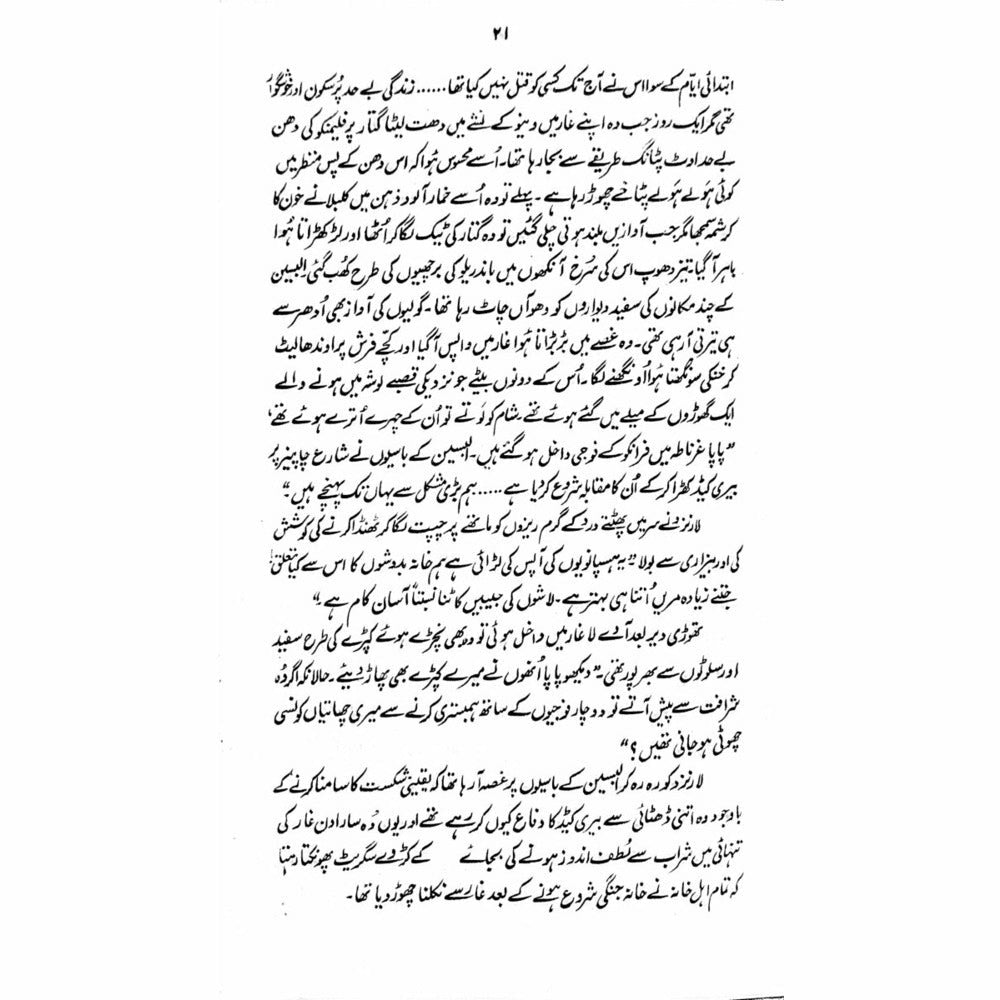 ۲۱
ابتدائی ایّام کے سوا اس نے آج تک کسی کو قتل نہیں کیا تھا...... زندگی بے حد پُرسکون اور خوشگوار
تھی مگر ایک روز جب وہ اپنے غار میں وینو کے نشے میں دھت لیٹا گتار پر فلیمنکو کی دھن
بے حد اوٹ پٹانگ طریقے سے بجا رہا تھا۔ اُسے محسوس ہُوا کہ اس دھن کے پس منظر میں
کوئی ہَولے ہَولے پٹاخے چھوڑ رہا ہے۔ پہلے تو وہ اُسے خمار آلود ذہن میں کلبلاتے خون کا
کرشمہ سمجھا مگر جب آوازیں بلند ہوتی چلی گئیں تو وہ گتار کی ٹیک لگا کر اُٹھا اور لڑکھڑاتا ہُوا
باہر آگیا۔ تیز دھوپ اس کی سُرخ آنکھوں میں بانڈریلو کی برچھیوں کی طرح کھُب گئی البسین
کے چند مکانوں کی سفید دیواروں کو دھواں چاٹ رہا تھا۔ گولیوں کی آواز بھی اُدھر سے
ہی تیرتی آرہی تھی۔ وہ غصے میں بڑبڑاتا ہُوا غار میں واپس آگیا اور کچے فرش پر اوندھا لیٹ
کر خنکی سونگھتا ہُوا اُونگھنے لگا۔ اُس کے دونوں بیٹے جو نزدیکی قصبے لوشہ میں ہونے والے
ایک گھوڑوں کے میلے میں گئے ہوئے تھے شام کو لَوٹے تو اُن کے چہرے اُترے ہوئے تھے،
”پاپا غرناطہ میں فرانکو کے فوجی داخل ہو گئے ہیں۔ البسین کے باسیوں نے شارع چاپیئز پر
بیری کیڈ کھڑا کر کے اُن کا مقابلہ شروع کر دیا ہے..... ہم بڑی مشکل سے یہاں تک پہنچے ہیں۔“
لارنزو نے سر میں پھٹتے درد کے گرم ریزوں کو ماتھے پر چپت لگا کر ٹھنڈا کرنے کی کوشش
کی اور بیزاری سے بولا ”یہ ہسپانویوں کی آپس کی لڑائی ہے ہم خانہ بدوشوں کا اس سے کیا تعلق؟
جتنے زیادہ مریں اُتنا ہی بہتر ہے۔ لاشوں کی جیبیں کاٹنا نسبتاً آسان کام ہے۔“
تھوڑی دیر بعد آدے لا غار میں داخل ہوئی تو وہ بھی نچڑے ہوئے کپڑے کی طرح سفید
اور سلوٹوں سے بھرپور تھی۔ ”دیکھو پاپا اُنھوں نے میرے کپڑے بھی پھاڑ دیئے۔ حالانکہ اگر وُہ
شرافت سے پیش آتے تو دو چار فوجیوں کے ساتھ ہمبستری کرنے سے میری چھاتیاں کونسی
چھوٹی ہو جاتی تھیں؟“
لارنزو کو رہ رہ کر البسین کے باسیوں پر غصہ آ رہا تھا کہ یقینی شکست کا سامنا کرنے کے
باوجود وہ اتنی ڈھٹائی سے بیری کیڈ کا دفاع کیوں کر رہے تھے اور یوں وُہ سارا دن غار کی
تنہائی میں شراب سے لُطف اندوز ہونے کی بجائے کے کڑوے سگریٹ پھونکتا رہتا
کہ تمام اہل خانہ نے خانہ جنگی شروع ہونے کے بعد غار سے نکلنا چھوڑ دیا تھا۔